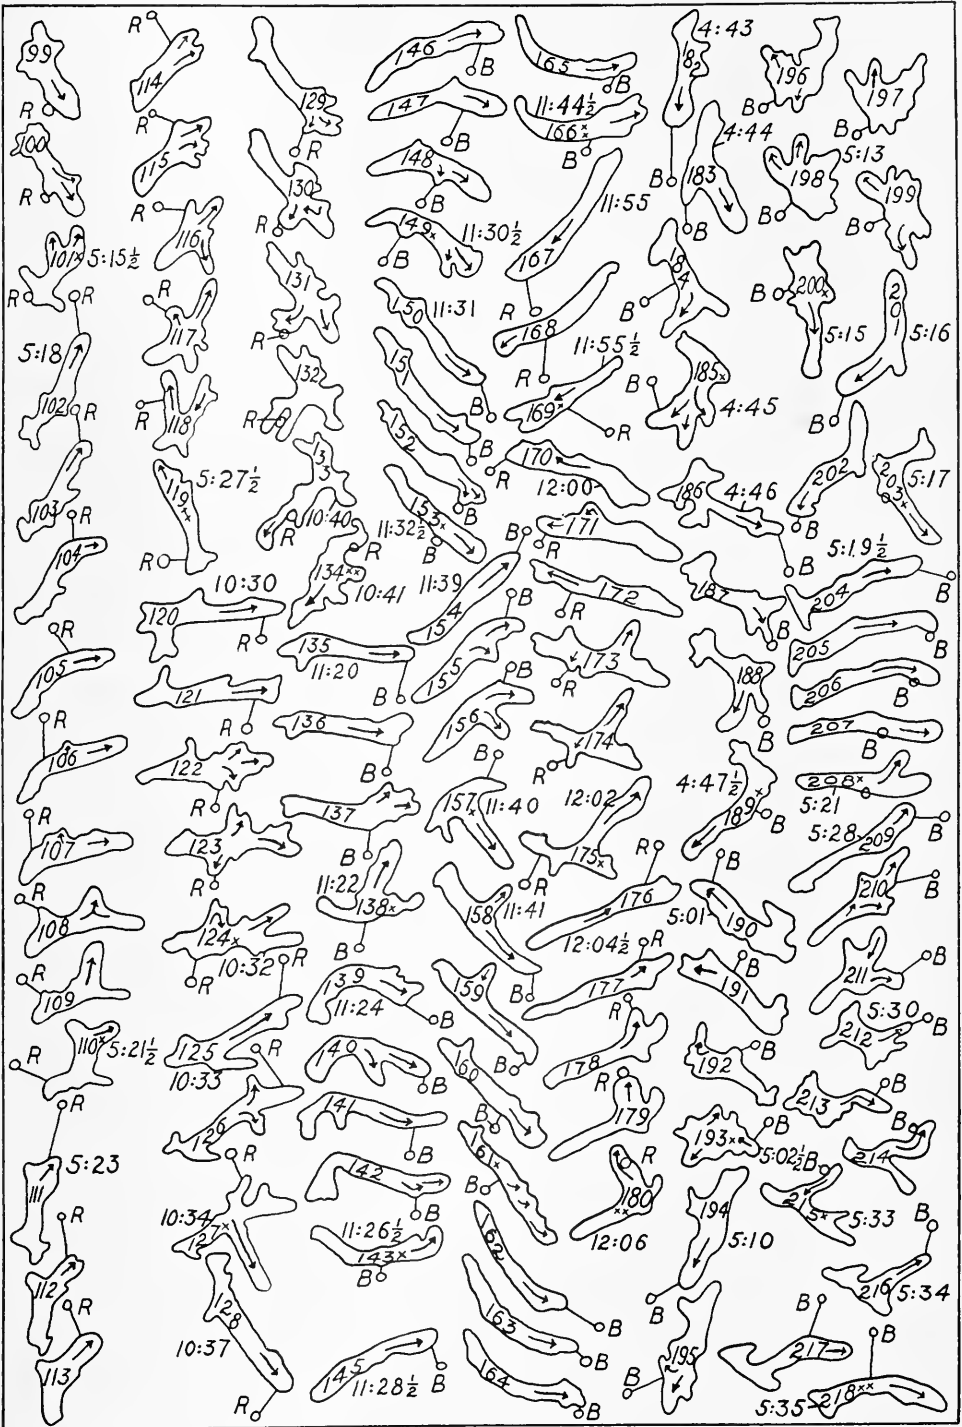 99
R
100
R
101x 5:15½
R
R
5:18
102
R
103
R
104
R
105
R
106
R
107
R
108
R
109
R
110x 5:21½
R
111 5:23
R
112
R
113
R
114
R
115
R
116
R
117
R
118
R
119xx 5:27½
R
120 10:30
R
121
R
122
R
123
R
124x
R
10:32
R
125
10:33
R
126
R
10:34
127x
128
10:37
R
129
R
130
R
131
R
132
R
133
R
10:40
R
134xx
10:41
135
11:20
B
136
B
137
B
11:22
138x
B
139
11:24
B
140
B
141
B
142
B
11:26½
143x
B
145
11:28½
B
146
B
147
B
148
B
149x 11:30½
B
150 11:31
B
151
B
152
B
153x
11:32½
B
11:39
154
B
155
B
156
B
157x 11:40
B
158 11:41
B
159
B
160
B
161x
B
162
B
163
B
164
B
165
B
11:44½
166xx
B
11:55
167
R
168
R
11:55½
169x
R
170
R
12:00
171
R
172
R
173
R
174
R
12:02
175x
R
176
R
12:04½
177
R
178
R
179
R
180xx
12:06
182 4:43
B
183 4:44
B
184
B
185x
B
4:45
186 4:46
B
187
B
188
B
4:47½
189x
B
5:01
190
B
191
B
192
B
193xx
B
5:02½
194
5:10
B
195
B
196
B
197
B
5:13
198
B
199
B
200x
B
5:15
201 5:16
B
202
B
203x 5:17
5:19½
204
B
205
B
206
B
207
B
208x
5:21
5:28
209
B
210
B
211
B
212 5:30
B
213
B
214
B
215x
B
5:33
216 5:34
B
217
B
218xx
5:35
B